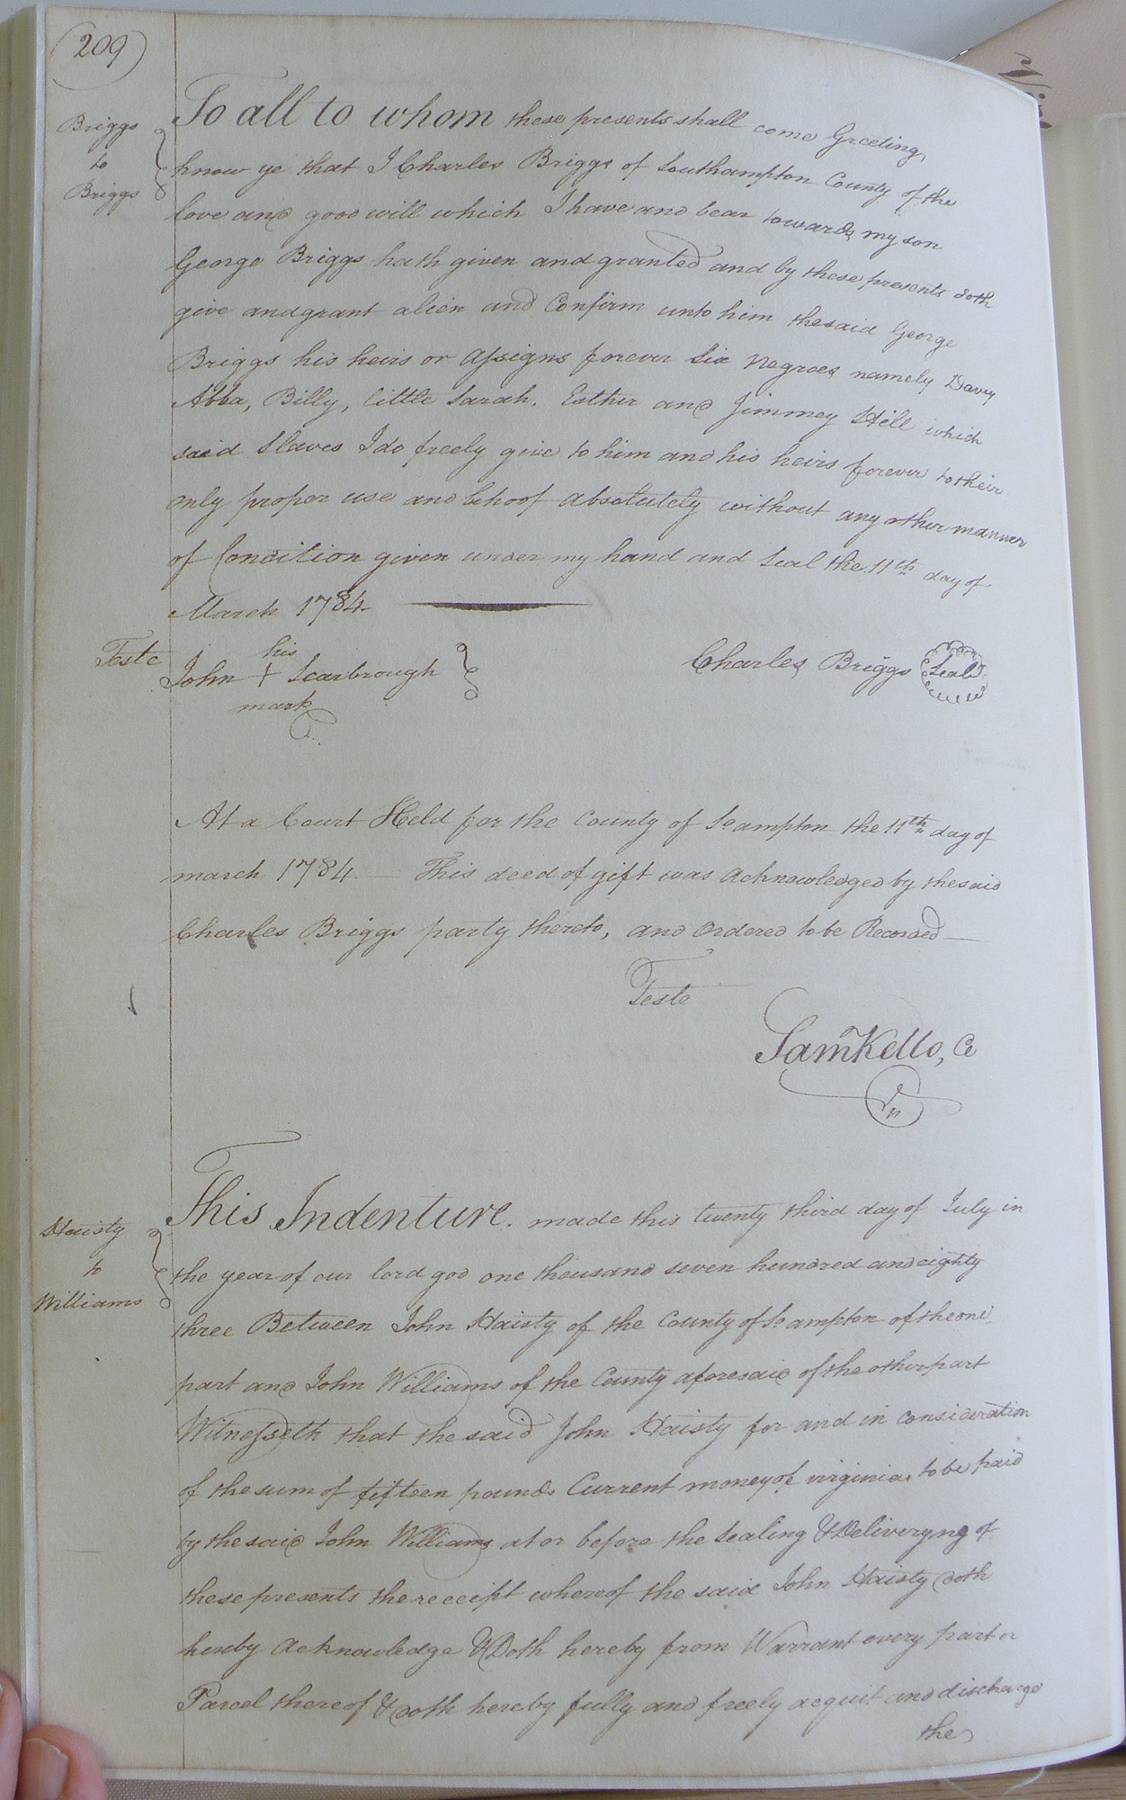 (209)
Briggs
to
Briggs
To all to whom these presents shall come Greeting
know ye that I Charles Briggs of Southampton County of the
love and good will which I have and bear towards my son
George Briggs hath given and granted and by these presents doth
give and grant alien and Confirm unto him the said George
Briggs his heirs or assigns forever Six negroes namely Davy
Abba, Billy, little Sarah, Esther and Jimmey Hill which
said Slaves I do freely give to him and his heirs forever to their
only proper use and behoof absolutely without any other manner
of Condition given under my hand and Seal the 11th day of
March 1784
Teste
his
John + Scarbrough
mark
Charles Briggs Seal
At a Court Held for the County of So ampton the 11th day of
march 1784. — This deed of gift was Acknowledged by the said
Charles Briggs party thereto, and Ordered to be Recorded —
Teste
Sam Kello, C
Haisty
to
Williams
This Indenture. made this twenty third day of July in
the year of our lord god one thousand seven hundred and eighty
three Between John Haisty of the County of So ampton of the one
part and John Williams of the County aforesaid of the other part
Witnesseth that the said John Haisty for and in consideration
of the sum of fifteen pounds Current money of virginia to be paid
by the said John Williams at or before the Sealing & Deliveryng of
these presents the receipt whereof the said John Haisty doth
hereby Acknowledge & Doth hereby from Warrant every part or
Parcel thereof & doth hereby fully and freely acquit and discharge
the